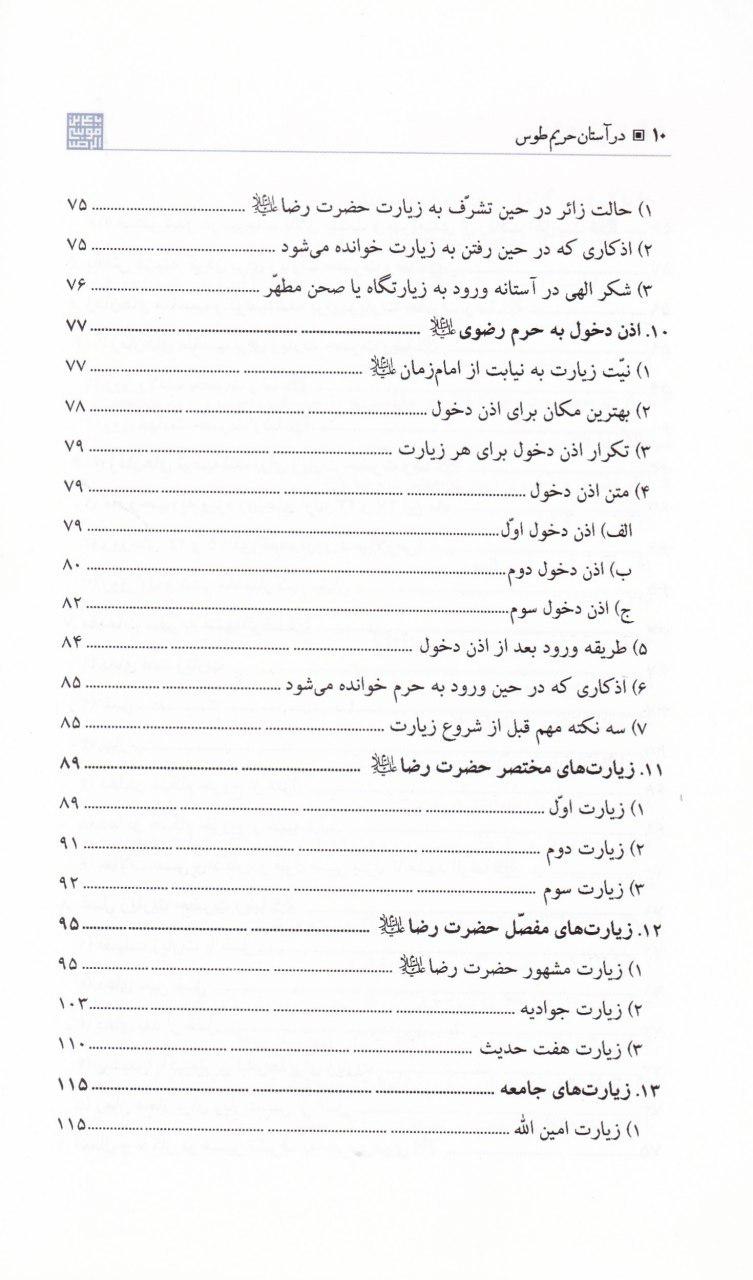 ۱۰ ▣ در آستان حریم طوس
۱) حالت زائر در حین تشرّف به زیارت حضرت رضا علیه‌السلام ........ ۷۵
۲) اذکاری که در حین رفتن به زیارت خوانده می‌شود ........ ۷۵
۳) شکر الهی در آستانه ورود به زیارتگاه یا صحن مطهّر ........ ۷۶
۱۰. اذن دخول به حرم رضوی علیه‌السلام ........ ۷۷
۱) نیّت زیارت به نیابت از امام‌زمان علیه‌السلام ........ ۷۷
۲) بهترین مکان برای اذن دخول ........ ۷۸
۳) تکرار اذن دخول برای هر زیارت ........ ۷۹
۴) متن اذن دخول ........ ۷۹
الف) اذن دخول اوّل ........ ۷۹
ب) اذن دخول دوم ........ ۸۰
ج) اذن دخول سوم ........ ۸۲
۵) طریقه ورود بعد از اذن دخول ........ ۸۴
۶) اذکاری که در حین ورود به حرم خوانده می‌شود ........ ۸۵
۷) سه نکته مهم قبل از شروع زیارت ........ ۸۵
۱۱. زیارت‌های مختصر حضرت رضا علیه‌السلام ........ ۸۹
۱) زیارت اوّل ........ ۸۹
۲) زیارت دوم ........ ۹۱
۳) زیارت سوم ........ ۹۲
۱۲. زیارت‌های مفصّل حضرت رضا علیه‌السلام ........ ۹۵
۱) زیارت مشهور حضرت رضا علیه‌السلام ........ ۹۵
۲) زیارت جوادیه ........ ۱۰۳
۳) زیارت هفت حدیث ........ ۱۱۰
۱۳. زیارت‌های جامعه ........ ۱۱۵
۱) زیارت امین الله ........ ۱۱۵